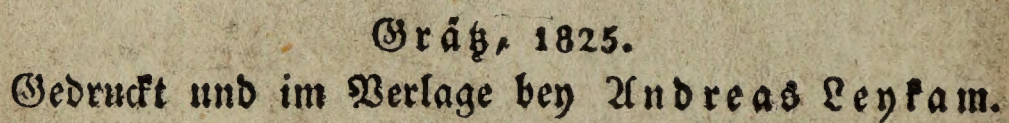 Grätz, 1825.
Gedruckt und im Verlage bey Andreas Leykam.